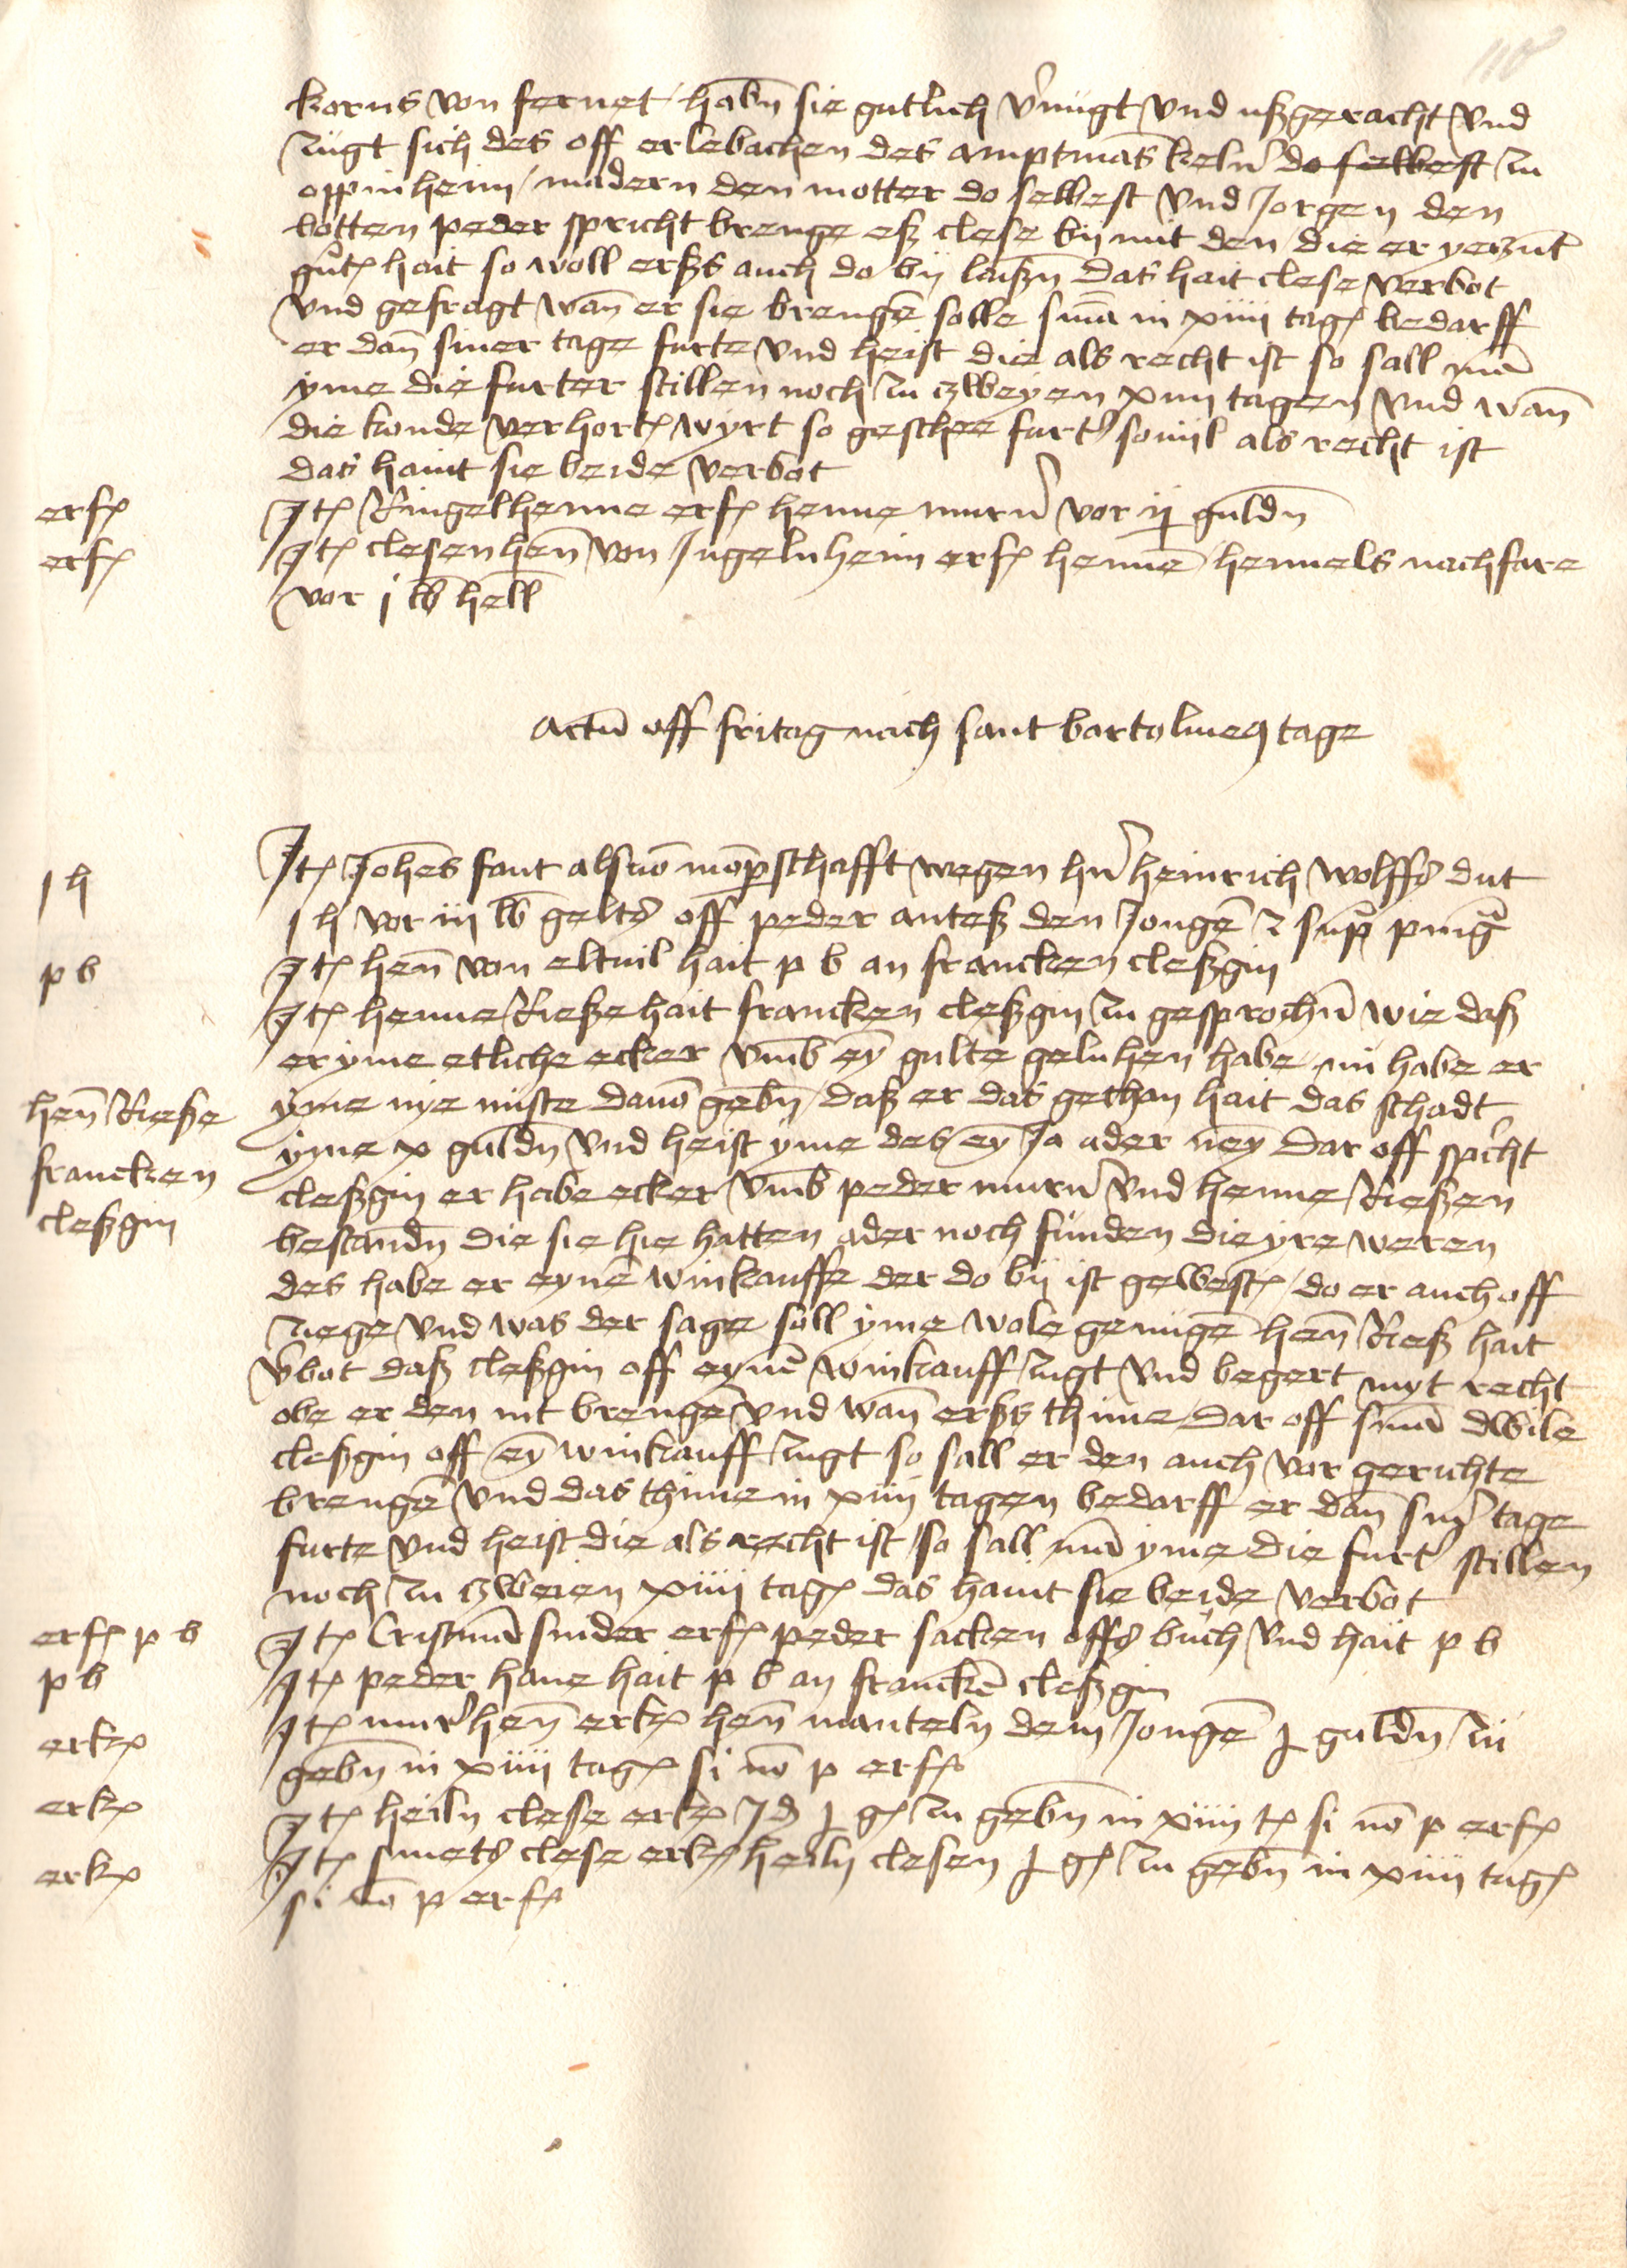 118
korns von fernet / habn̄ sie gutlich v'nugt vnd ußgeracht vnd
zugt sich des off erlebachen des amptmās keln' do selbest zu
oppinheim / madern den motter do selbest vnd Jorgen den
botten peder spricht brenge eß clese bij mit den die er yerzūt
gūt hait so woll erßs auch do bij laißn̄ das hait clese verbot
vnd gefragt wan̄ er sie brengē solle s mā in xiiij tagꝭ bedarff
er dan̄ siner tage furte vnd heist die als recht ist so sall mā
yme die furter stillen noch zu zweyen xiiij tagen vnd wan̄
die konde verhortꝭ wyrt so geschee furt' so vil als recht ist
das haint sie beide verbot
erfꝭ Jtꝭ Ringelhenne erfꝭ henne murer' vor ij guldn̄
erfꝭ Jtꝭ clesenhen̄ von Jngelnheim erfꝭ hennē hennels nachfare
vor j lb hell
Actū off fritag nach sant bartolmeꝯ tage
j h Jtꝭ Johēs fant als vō mōpschafft wegen hn̄ heinrich wolffs dut
j h vor iij lb gelts off peder anteß den Jongē z sup̄ pmg̃
p b Jtꝭ hen̄ von eltuil hait p b an francken cleßgin
Jtꝭ henne Rieße hait francken cleßgin zu gesprochn̄ wie daß
er yme etliche ecker vmb eȳ gulte geluhen habe nu habe er
hen̄ Rieße yme nye nūste dauō gebn̄ / daß er das gethan hait das schadt
francken yme x guldn̄ vnd heist yme des eȳ Ja ader ney Dar off sp̄icht
cleßgin cleßgin er habe ecker vmb peder murer' vnd henne Rießen
bestandn̄ die sie hie hatten ader noch funden die yre weren
des habe er eynē winkauffe der do bij ist gewestꝭ / do er auch off
ziege vnd was der sage soll yme wole genugē hen̄ Rieß hait
v'bot daß cleßgin off eynē winkauff zugt vnd begert myt recht
obe er den nit brengē vnd wan̄ erßs thūe / Dar off s mā dwile
cleßgin off eȳ winkauff zugt so sall er den auch vor gerichte
brengē vnd das thūe in xiiij tagen bedarff er dan̄ sin' tage
furte vnd heist die als recht ist so sall mā yme die furt' stillen
noch zu zweien xiiij tagꝭ das haint sie beide verbot
erfꝭ p b Jtꝭ Cristmā snider erfꝭ peder sacken offs buch vnd hait p b
p b Jtꝭ peder hane hait p b an franckē cleßgin
erkꝭ Jtꝭ mur' hen̄ erkꝭ hen̄ manteln dem Jongē j guldn̄ zu
gebn̄ in xiiij tagꝭ si nō p erfꝭ
erkꝭ Jtꝭ heiln clese erkꝭ Jd j gꝭ zu gebn̄ in xiiij tꝭ si nō p erfꝭ
erkꝭ Jtꝭ smets clese erkꝭ heiln clesen j gꝭ zu gebn̄ in xiiij tagꝭ
si nō p erfꝭ